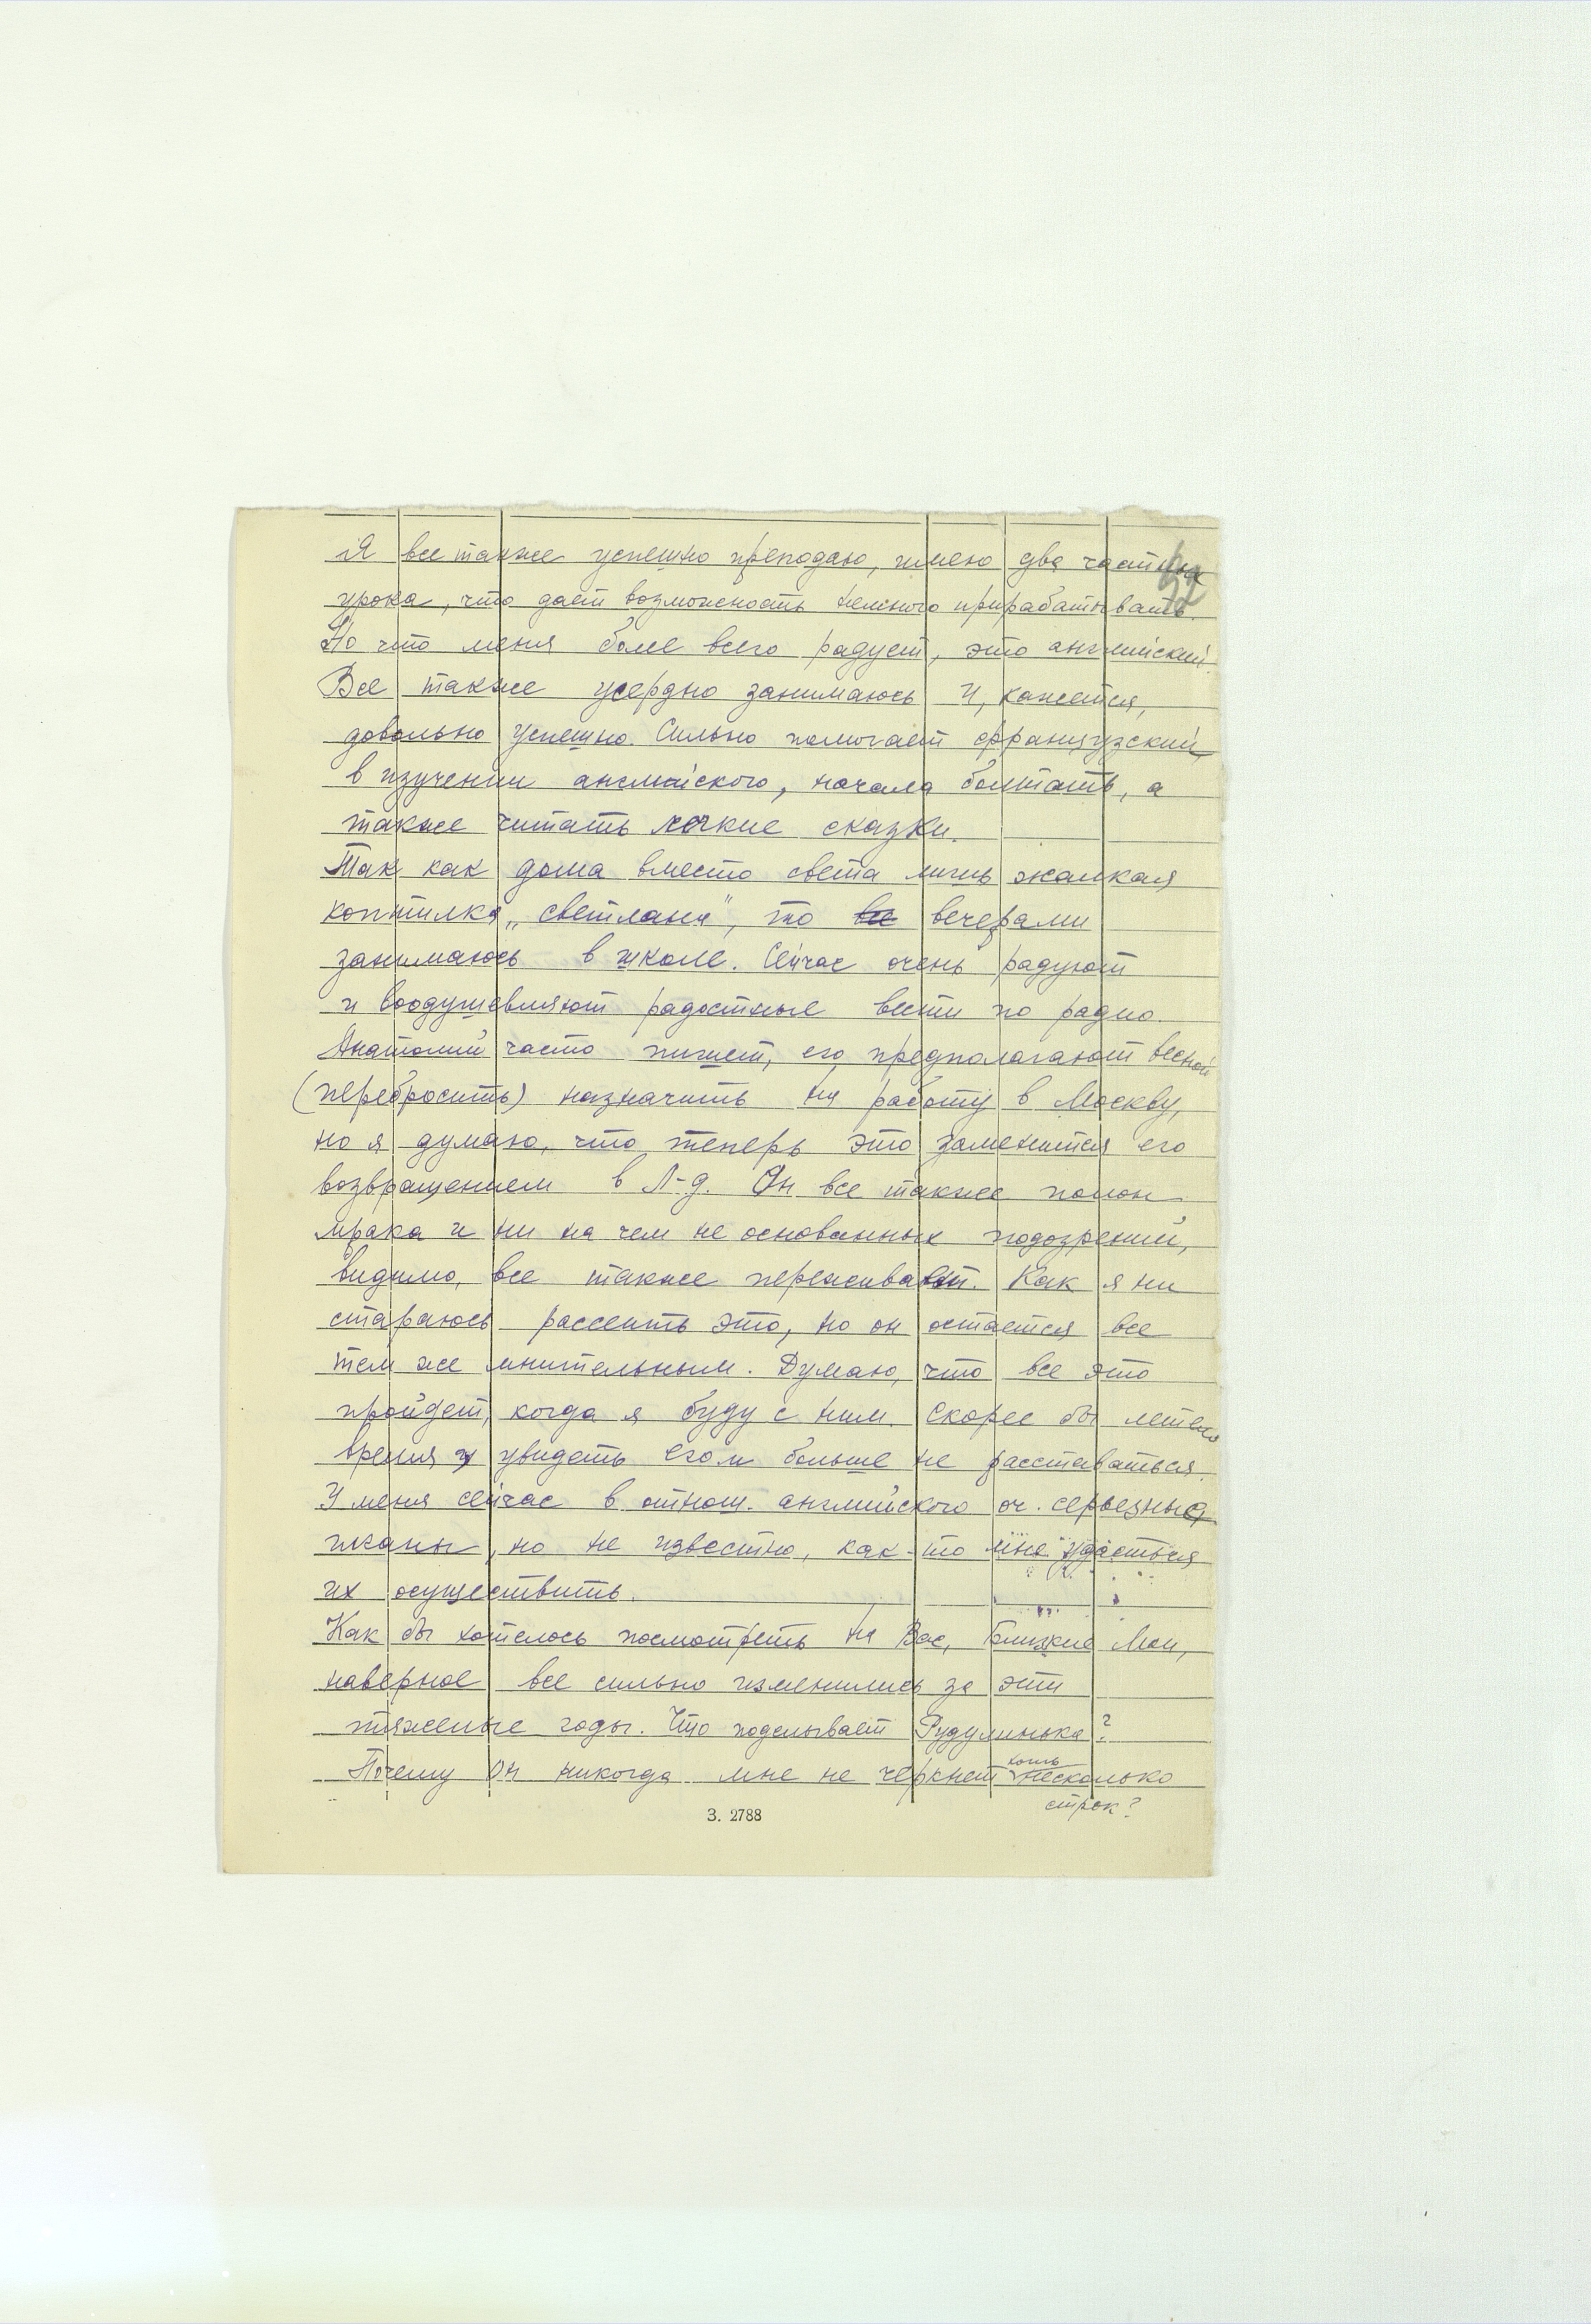 Я все также успешно преподаю, имею два частных
урока, что дает возможность немного прирабатывать.
Но что меня более всего радует, это английский.
Все также усердно занимаюсь и, кажется,
довольно успешно. Сильно помогает французский
в изучении английского, начала болтать, а
также читать легкие сказки.
Так как дома вместо света лишь жалкая
коптилка „светлана", то все вечерами
занимаюсь в школе. Сейчас очень радуют
и воодушевляют радостные вести по радио.
Анатолий часто пишет, его предполагают весной
(перебросить) назначить на работу в Москву,
но я думаю, что теперь это заменится его
возвращением в Л-д. Он все также полон
мрака и ни на чем не основанных подозрений,
видимо, все также переживает. Как я ни
стараюсь рассеить это, но он остается все
тем же мнительным. Думаю, что все это
пройдет, когда я буду с ним. Скорее бы летело
время и увидеть его и больше не расставаться.
У меня сейчас в отнош. английского оч. серьезные
планы, но не известно, как-то мне удасться
их осуществить.
Как бы хотелось посмотреть на Вас, близкие мои,
наверное все сильно изменились за эти
тяжелые годы. Что поделывает Рудулинька?
Почему он никогда мне не черкнет хоть несколько
строк?
З. 2788